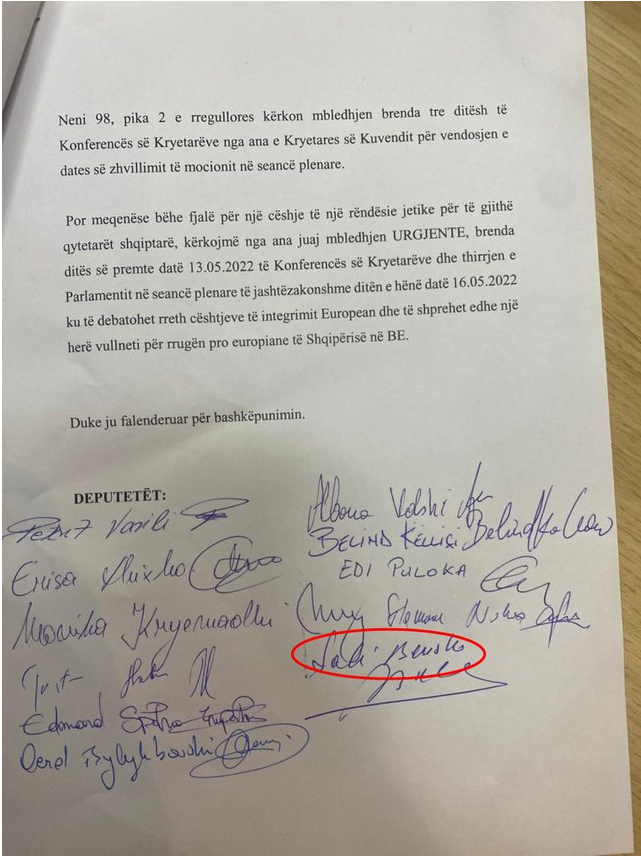 Neni 98, pika 2 e rregullores kërkon mbledhjen brenda tre ditësh të
Konferencës së Kryetarëve nga ana e Kryetares së Kuvendit për vendosjen e
dates së zhvillimit të mocionit në seancë plenare.
Por meqenëse bëhe fjalë për një cështje të një rëndësie jetike për të gjithë
qytetarët shqiptarë, kërkojmë nga ana juaj mbledhjen URGJENTE, brenda
ditës së premte datë 13.05.2022 të Konferencës së Kryetarëve dhe thirrjen e
Parlamentit në seancë plenare të jashtëzakonshme ditën e hënë datë 16.05.2022
ku të debatohet rreth cështjeve të integrimit European dhe të shprehet edhe një
herë vullneti për rrugën pro europiane të Shqipërisë në BE.
Duke ju falenderuar për bashkëpunimin.
DEPUTETËT:
Petrit Vasili
Erisa Xhixho
Monika Kryemadhi
Edmond
Qerel Bylykbashi
Albana Vokshi
BELIND KËLLIÇI
EDI PULOKA